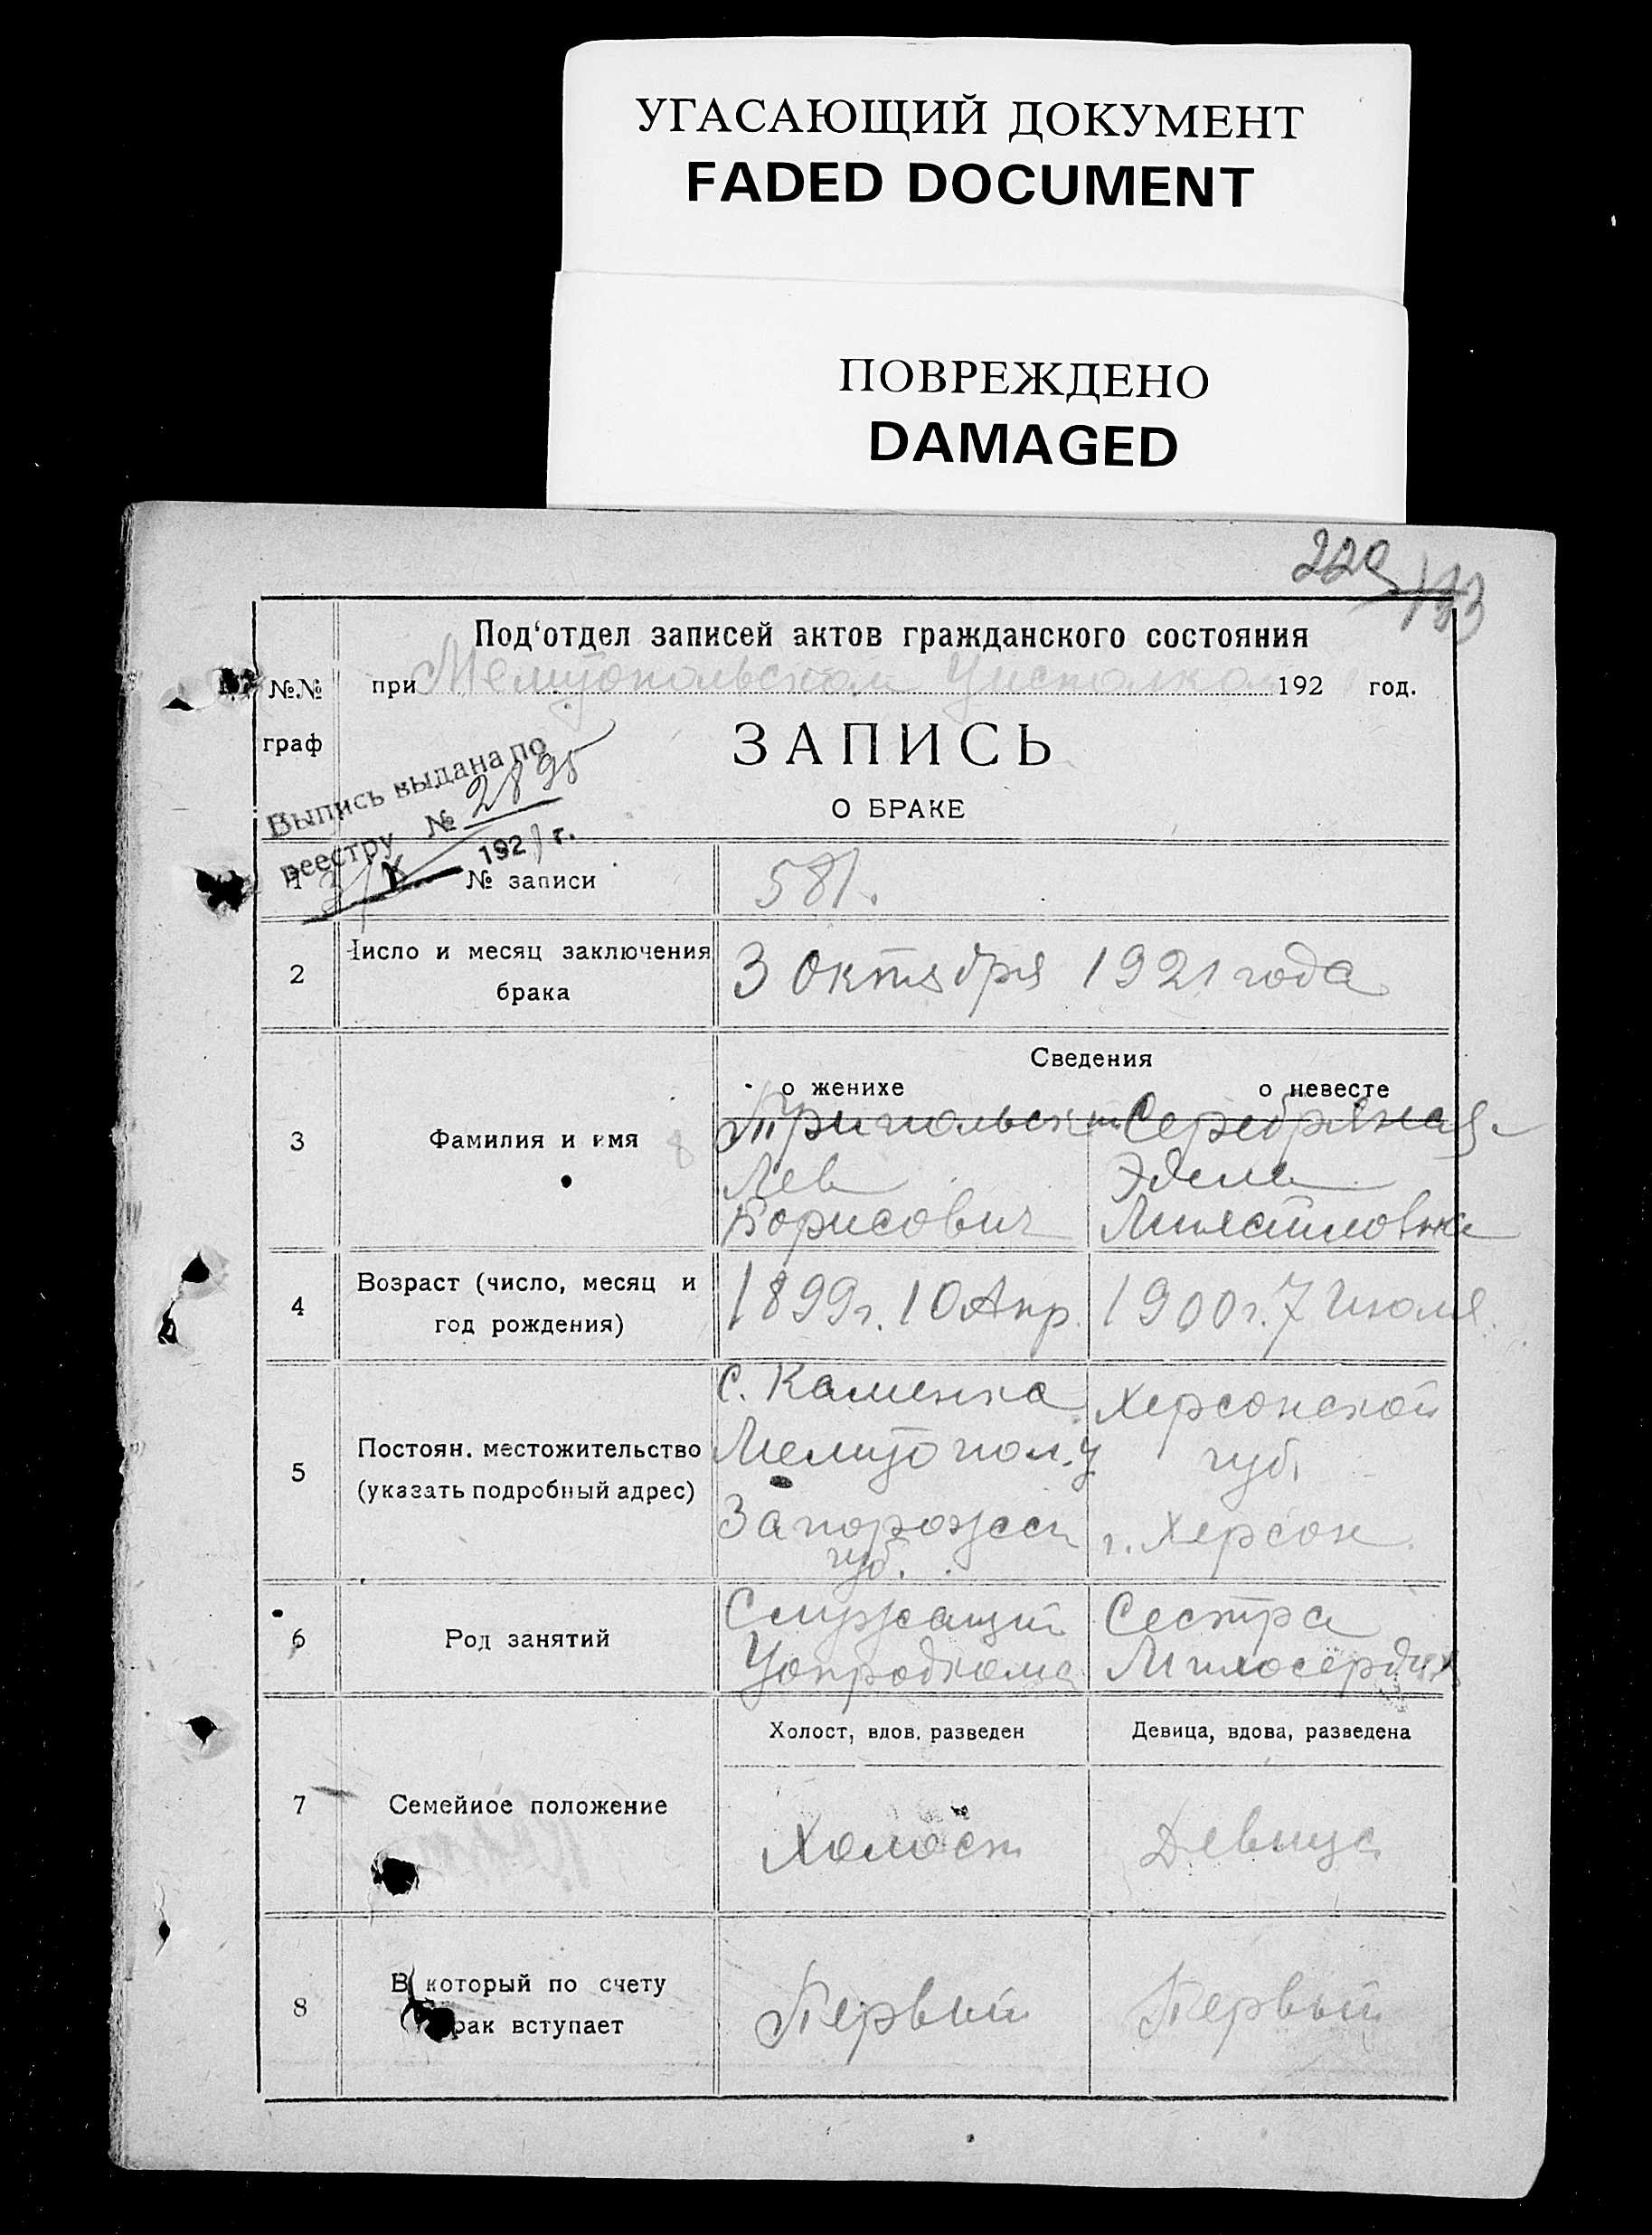 УГАСАЮЩИЙ ДОКУМЕНТ
FADED DOCUMENT
ПОВРЕЖДЕНО
DAMAGED
229
193
Под‘отдел записей актов гражданского состояния
№№ граф
при Мелитопольском Уисполком 192 год.
ЗАПИСЬ
О БРАКЕ
Выпись выдана по
реестру № 2895
3/X 1921 г.
1 № записи 581.
2 Число и месяц заключения брака 3 Октября 1921 года
Сведения
о женихе о невесте
3 Фамилия и имя 8
Трипольский Серебряная
Лев Эдель
Борисович
4 Возраст (число, месяц и год рождения) 1899г. 10 Апр. 1900г. 7 Июля.
5 Постоян. местожительство (указать подробный адрес)
с. Каменка Херсонской
Мелитопол. у губ.
Запорожск г. Херсон.
губ.
6 Род занятий
Служащий Сестра
Упродкома Милосердия
7 Семейное положение
Холост, вдов. разведен Девица, вдова, разведена
Холост Девица
8 В который по счету
брак вступает
Первый Первый